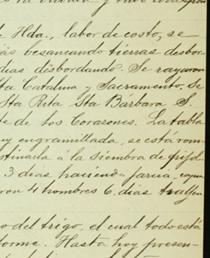 de Hda, labor de costo, se
besaneando tierras desbor
dias disbordando. Se rayaron
ta Catalina y Sacramento. Se
Sta Rita, Sta Bárbara S.
de los Corazones. La tabla
y engramillada, se está rom
tinarla a la siembra de frijol
3 dias haciendo farcia,
ron 4 hombres 6. dias
o del trigo, el cual todo está
forme. Hasta hoy presen-